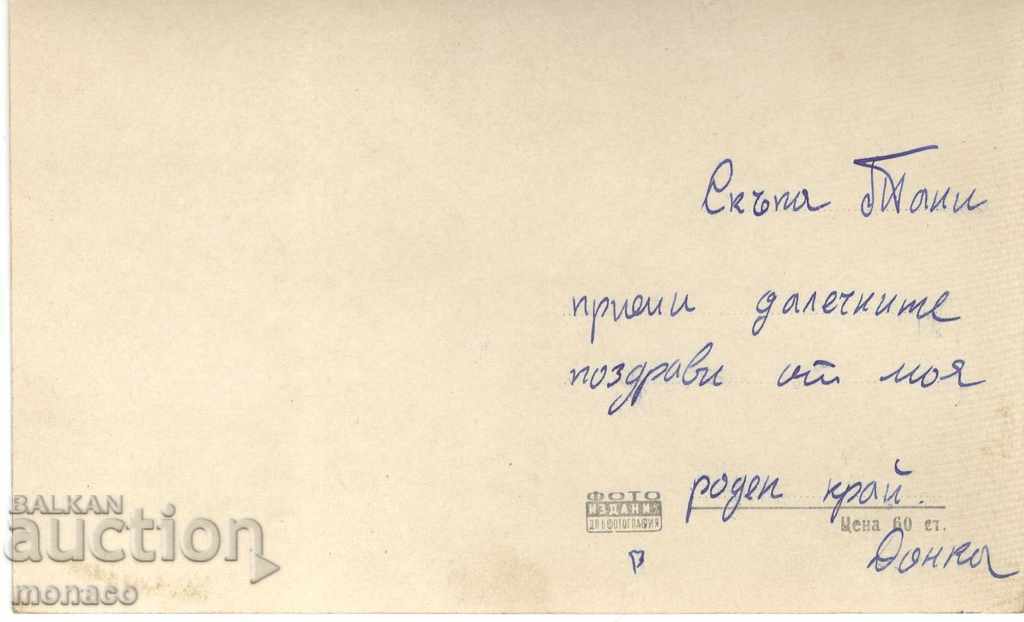 Скъпа Тани
приеми далечните
поздрави от моя
роден край.
ФОТО
ИЗДАНИЯ
ДП БФОТОГРАФИЯ
Цена 60 ст.
Донка
BALKAN
auction
monaco